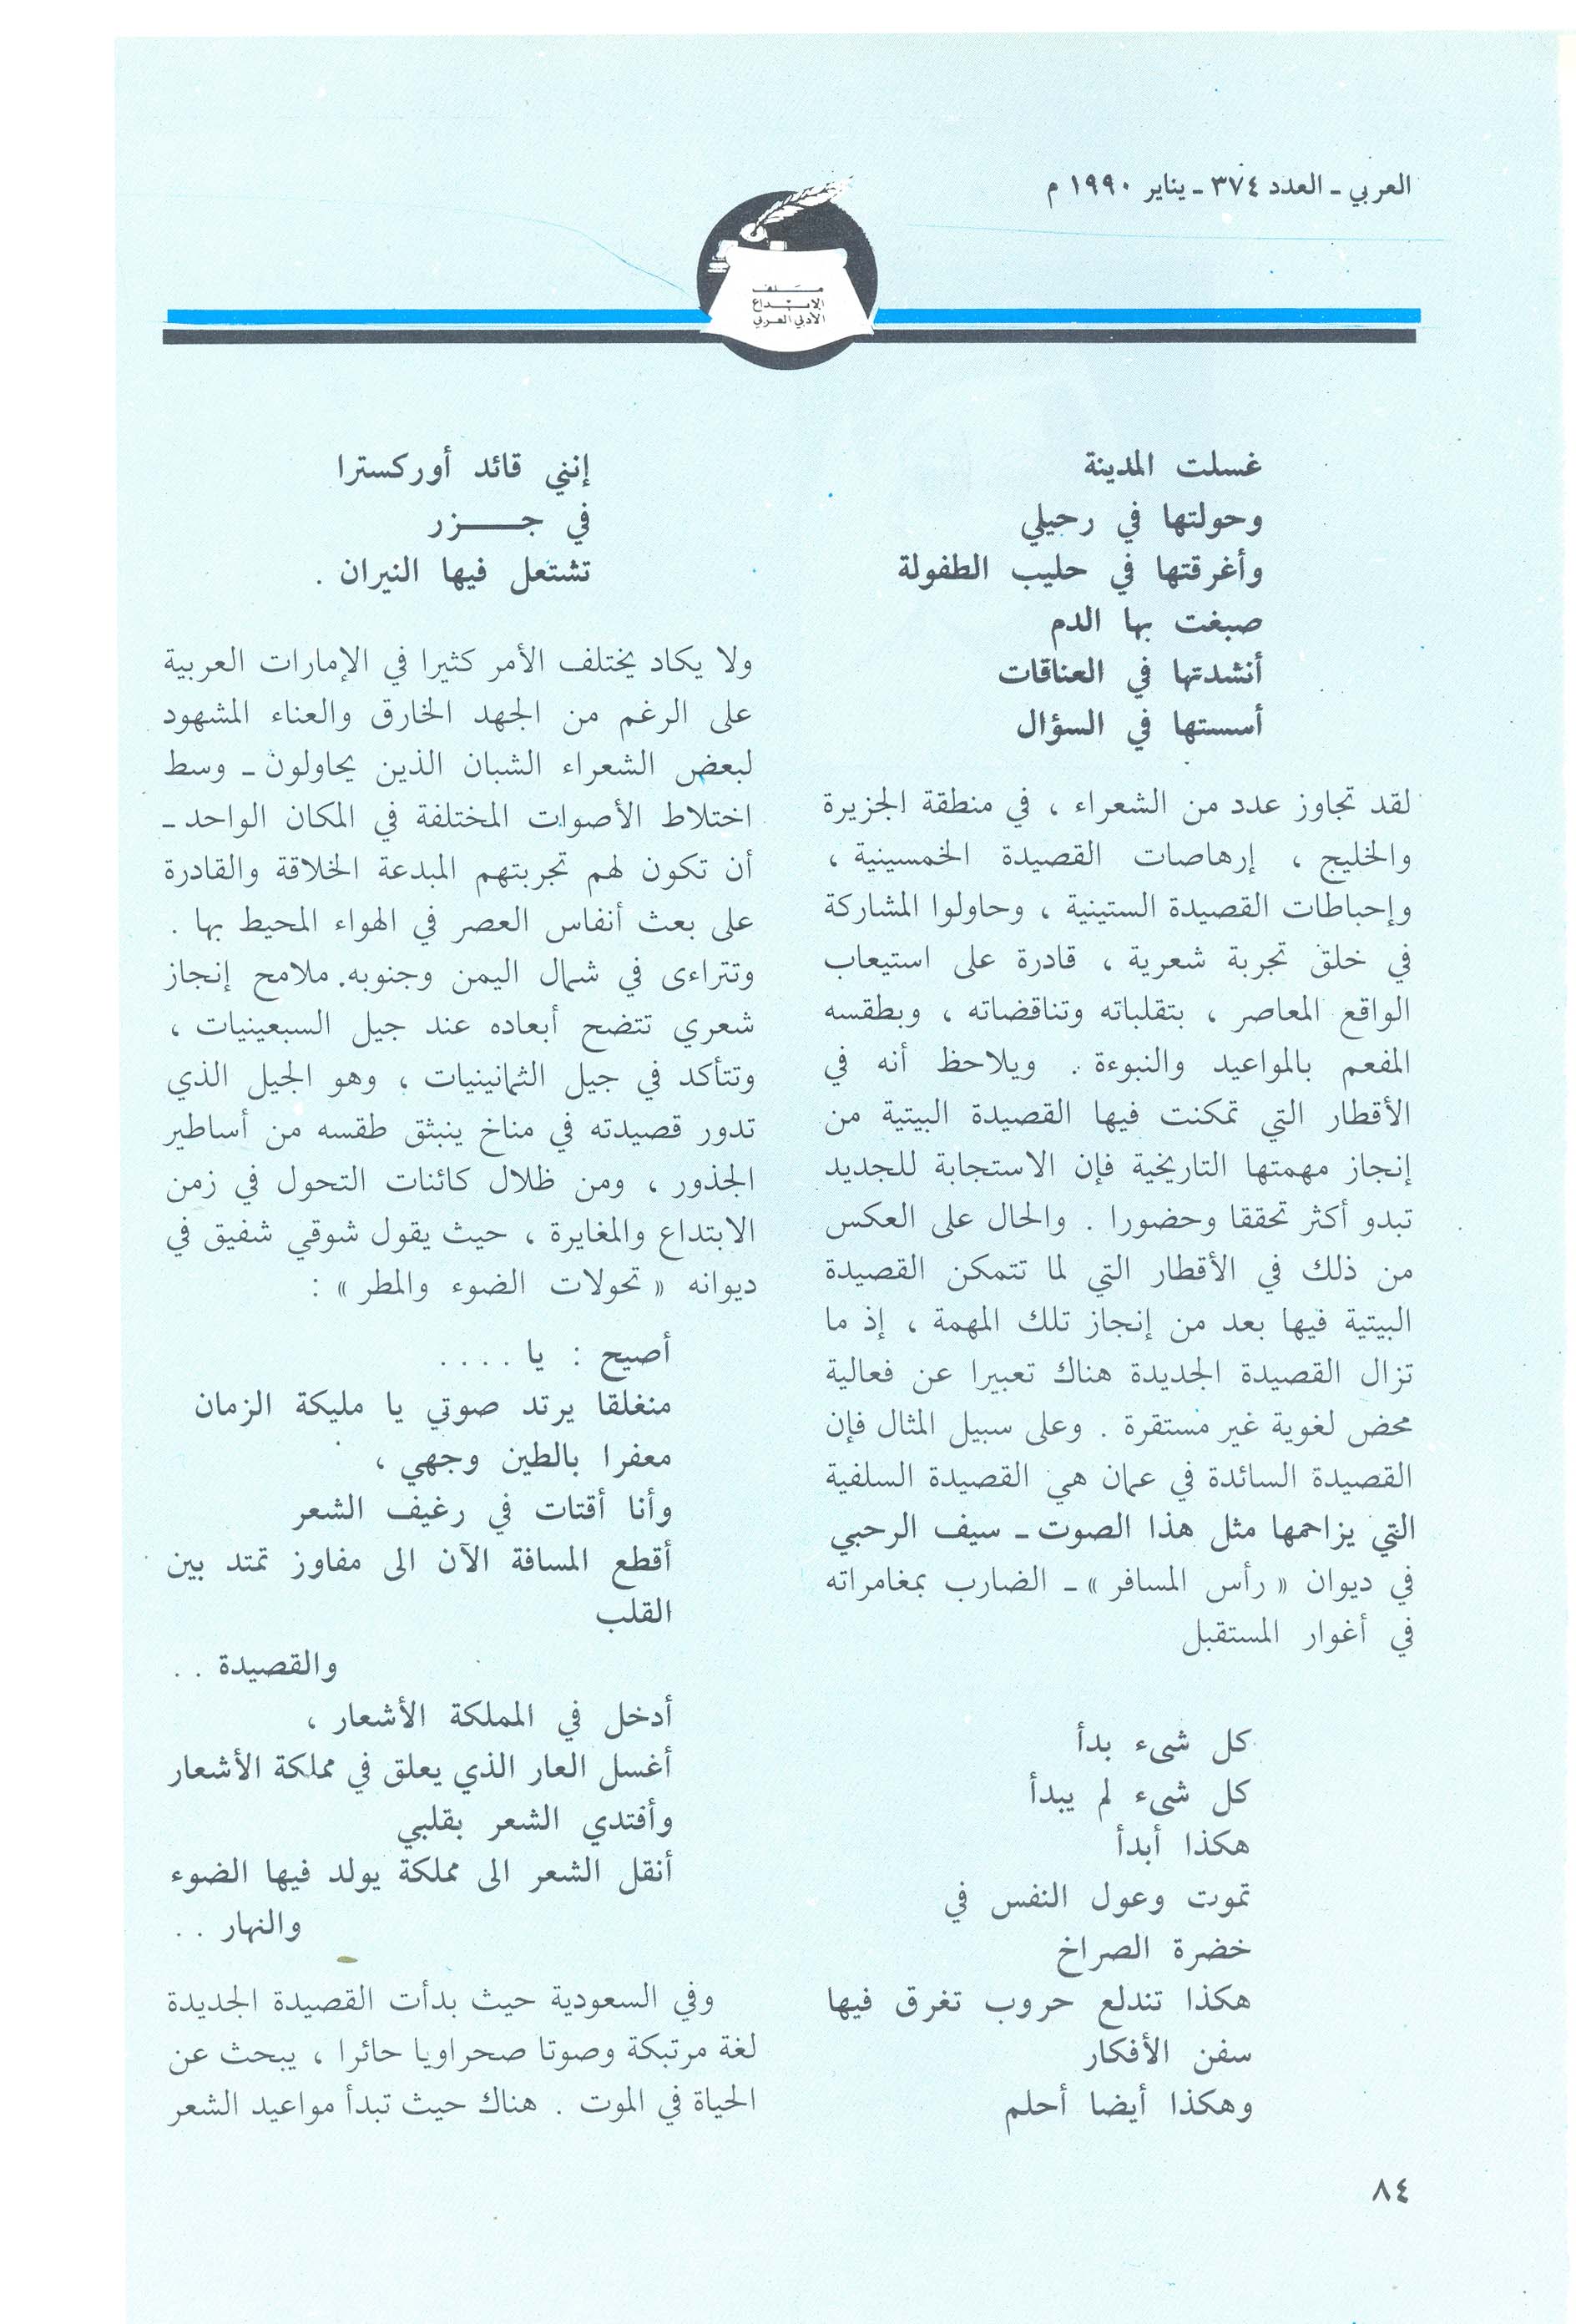 العربي ـ العدد ٣٧٤ ـ يناير ١٩٩٠ م
ملف
الإبداع
الأدبي العربي
غسلت المدينة
وحولتها في رحيلي
وأغرقتها في حليب الطفولة
صبغت بها الدم
أنشدتها في العناقات
أسستها في السؤال
لقد تجاوز عدد من الشعراء ، في منطقة الجزيرة
والخليج ، إرهاصات القصيدة الخمسينية ،
وإحباطات القصيدة الستينية ، وحاولوا المشاركة
في خلق تجربة شعرية ، قادرة على استيعاب
الواقع المعاصر ، بتقلباته وتناقضاته ، وبطقسه
المفعم بالمواعيد والنبوءة . ويلاحظ أنه في
الأقطار التي تمكنت فيها القصيدة البيتية من
إنجاز مهمتها التاريخية فإن الاستجابة للجديد
تبدو أكثر تحققا وحضورا . والحال على العكس
من ذلك في الأقطار التي لما تتمكن القصيدة
البيتية فيها بعد من إنجاز تلك المهمة ، إذ ما
تزال القصيدة الجديدة هناك تعبيرا عن فعالية
محض لغوية غير مستقرة . وعلى سبيل المثال فإن
القصيدة السائدة في عمان هي القصيدة السلفية
التي يزاحمها مثل هذا الصوت ـ سيف الرحبي
في ديوان « رأس المسافر » ـ الضارب بمغامراته
في أغوار المستقبل
كل شىء بدأ
كل شىء لم يبدأ
هكذا أبدأ
تموت وعول النفس في
خضرة الصراخ
هكذا تندلع حروب تغرق فيها
سفن الأفكار
وهكذا أيضا أحلم
إنني قائد أوركسترا
في جـــزر
تشتعل فيها النيران .
ولا يكاد يختلف الأمر كثيرا في الإمارات العربية
على الرغم من الجهد الخارق والعناء المشهود
لبعض الشعراء الشبان الذين يحاولون ـ وسط
اختلاط الأصوات المختلفة في المكان الواحد ـ
أن تكون لهم تجربتهم المبدعة الخلاقة والقادرة
على بعث أنفاس العصر في الهواء المحيط بها .
وتتراءى في شمال اليمن وجنوبه. ملامح إنجاز
شعري تتضح أبعاده عند جيل السبعينيات ،
وتتأكد في جيل الثمانينيات ، وهو الجيل الذي
تدور قصيدته في مناخ ينبثق طقسه من أساطير
الجذور ، ومن ظلال كائنات التحول في زمن
الابتداع والمغايرة ، حيث يقول شوقي شفيق في
ديوانه « تحولات الضوء والمطر » :
أصيح : يا ....
منغلقا يرتد صوتي يا مليكة الزمان
معفرا بالطين وجهي ،
وأنا أقتات في رغيف الشعر
أقطع المسافة الآن الى مفاوز تمتد بين
القلب
والقصيدة ..
أدخل في المملكة الأشعار ،
أغسل العار الذي يعلق في مملكة الأشعار
وأفتدي الشعر بقلبي
أنقل الشعر الى مملكة يولد فيها الضوء
والنهار ..
وفي السعودية حيث بدأت القصيدة الجديدة
لغة مرتبكة وصوتا صحراويا حائرا ، يبحث عن
الحياة في الموت . هناك حيث تبدأ مواعيد الشعر
٨٤